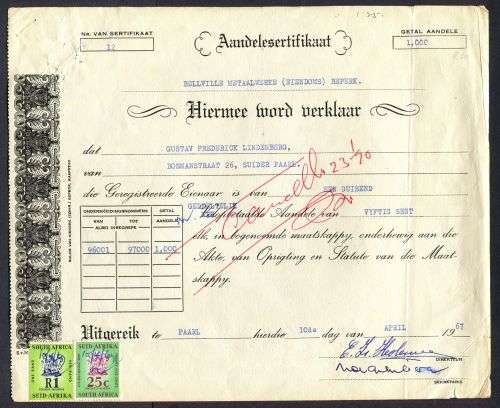 1.25.
No. VAN SERTIFIKAAT
12
Aandelesertifikaat
GETAL AANDELE
1,000
BELLVILLE METAALWERKE (EIENDOMS) BEPERK.
Hiermee word verklaar
dat GUSTAV FREDERICK LINDENBERG,
van BOSMANSTRAAT 26, SUIDER PAARL.
die Geregistreerde Eienaar is van EEN DUISEND
GEDEELTELIK
Volopbetaalde Aandele van VYFTIG SENT
Cancelled 23/1/70
ONDERSKEIDINGSNOMMERS
GETAL AANDELE
VAN
TOT
ALBEI INBEGREPE
96001 97000 1,000
elk, in bogenoemde maatskappy, onderhewig aan die
Akte, van Oprigting en Statute van die Maat-
skappy.
Uitgereik te PAARL hierdie 10de dag van APRIL 1967
DIREKTEUR
SEKRETARIS
SOUTH AFRICA
R1
SUID-AFRIKA
SOUTH AFRICA
25c
SUID-AFRIKA